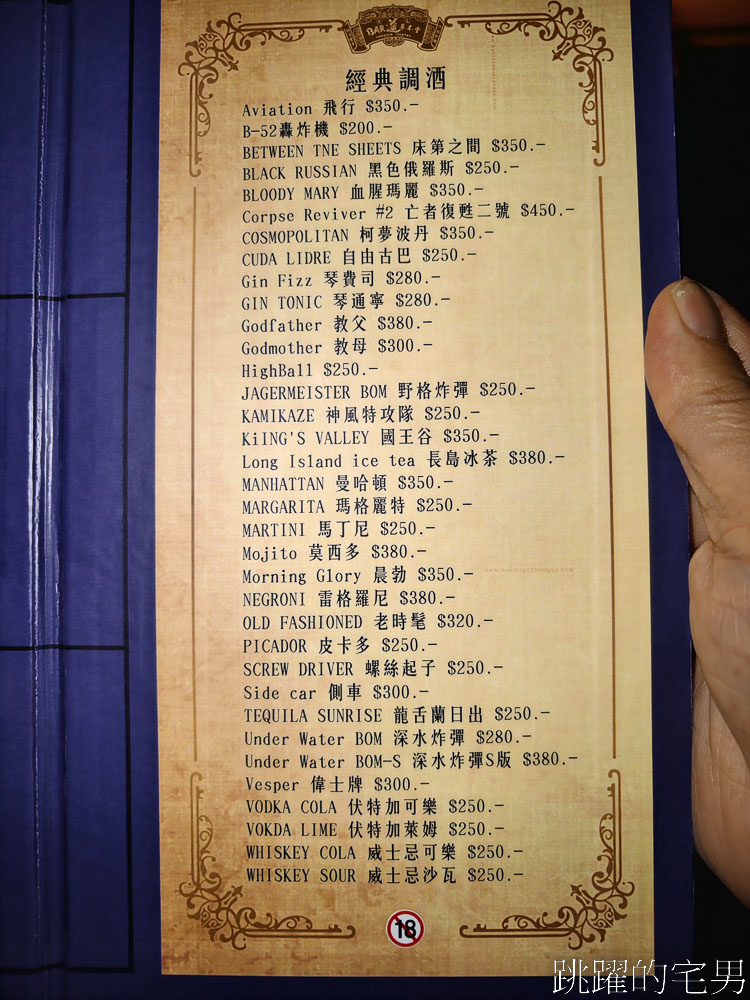 BAR
經典調酒
Aviation 飛行 $350.-
B-52轟炸機 $200.-
BETWEEN TNE SHEETS 床第之間 $350.-
BLACK RUSSIAN 黑色俄羅斯 $250.-
BLOODY MARY 血腥瑪麗 $350.-
Corpse Reviver #2 亡者復甦二號 $450.-
COSMOPOLITAN 柯夢波丹 $350.-
CUDA LIDRE 自由古巴 $250.-
Gin Fizz 琴費司 $280.-
GIN TONIC 琴通寧 $280.-
Godfather 教父 $380.-
Godmother 教母 $300.-
HighBall $250.-
JAGERMEISTER BOM 野格炸彈 $250.-
KAMIKAZE 神風特攻隊 $250.-
KiING'S VALLEY 國王谷 $350.-
Long Island ice tea 長島冰茶 $380.-
MANHATTAN 曼哈頓 $350.-
MARGARITA 瑪格麗特 $250.-
MARTINI 馬丁尼 $250.-
Mojito 莫西多 $380.-
Morning Glory 晨勃 $350.-
NEGRONI 雷格羅尼 $380.-
OLD FASHIONED 老時髦 $320.-
PICADOR 皮卡多 $250.-
SCREW DRIVER 螺絲起子 $250.-
Side car 側車 $300.-
TEQUILA SUNRISE 龍舌蘭日出 $250.-
Under Water BOM 深水炸彈 $280.-
Under Water BOM-S 深水炸彈S版 $380.-
Vesper 偉士牌 $300.-
VODKA COLA 伏特加可樂 $250.-
VOKDA LIME 伏特加萊姆 $250.-
WHISKEY COLA 威士忌可樂 $250.-
WHISKEY SOUR 威士忌沙瓦 $250.-
18
跳躍的宅男